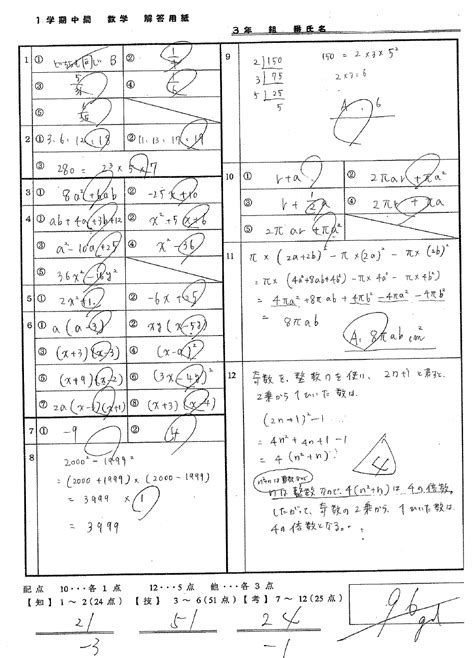 1学期中間 数学 解答用紙
3年 組 番 氏名
1
① どちらも同じ B
②
③
④
⑤
2
① 3, 6, 12, 18
② 11, 13, 17, 19
③ 280 = 2³ × 5 × 7
3
① 8a² + 6ab
② -25x + 10
4
① ab + 4a + 3b + 12
② x² + 5x + 6
③ a² - 10a + 25
④ x² - 36
⑤ 36x² - 16y²
5
①
② -6x + 25
6
① a(a - 3)
② xy(x - 5y)
③ (x + 3)(x - 3)
④
⑤ (x + 9)(x - 2)
⑥
⑦ 2a(x - 1)(x + 1)
⑧ (x + 3)(x - 4)
7
① -9
② 4
8
2000² - 1999²
= (2000 + 1999) × (2000 - 1999)
= 3999 × 1
= 3999
9
2 150
3 75
5 25
5
150 = 2 × 3 × 5²
2 × 3 = 6
A. 6
10
①
② 2πar + πa²
③ r + 1/2 a
④ 2πr + πa
⑤ 2πar + πa²
11
π × (2a + 2b)² - π × (2a)² - π × (2b)²
= π × (4a² + 8ab + 4b²) - π × 4a² - π × 4b²
= 4πa² + 8πab + 4πb² - 4πa² - 4πb²
= 8πab
A. 8πab cm²
12
奇数を、整数nを使い、2n+1と表すと、
2乗から1ひいた数は、
(2n+1)² - 1
= 4n² + 4n + 1 - 1
= 4(n² + n)
4
n²+nは整数なので
4(n²+n)は4の倍数。
したがって、奇数の2乗から1ひいた数は
4の倍数となる。
配点 10・・・各1点 12・・・5点 他・・・各3点
【知】1～2(24点) 【技】3～6(51点) 【考】7～12(25点)
21
51
24
-3
-1
96